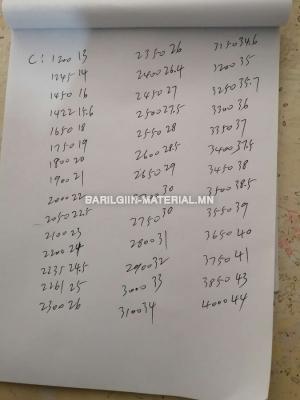 C: 1200 13
1245 14
1450 16
1422 15.6
1650 18
1750 19
1800 20
1900 21
2000 22
2050 22.5
2100 23
2200 24
2235 24.5
2261 25
2300 26
2350 26
2400 26.4
2450 27
2500 27.5
2550 28
2600 28.5
2650 29
30
2750 30
2800 31
2900 32
3000 33
3100 34
3150 34.6
3200 35
3250 35.7
3300 36
3350 37
3400 37.5
3450 38
3500 38.5
3550 39
3650 40
3750 41
3850 43
4000 44
BARILGIIN-MATERIAL.MN